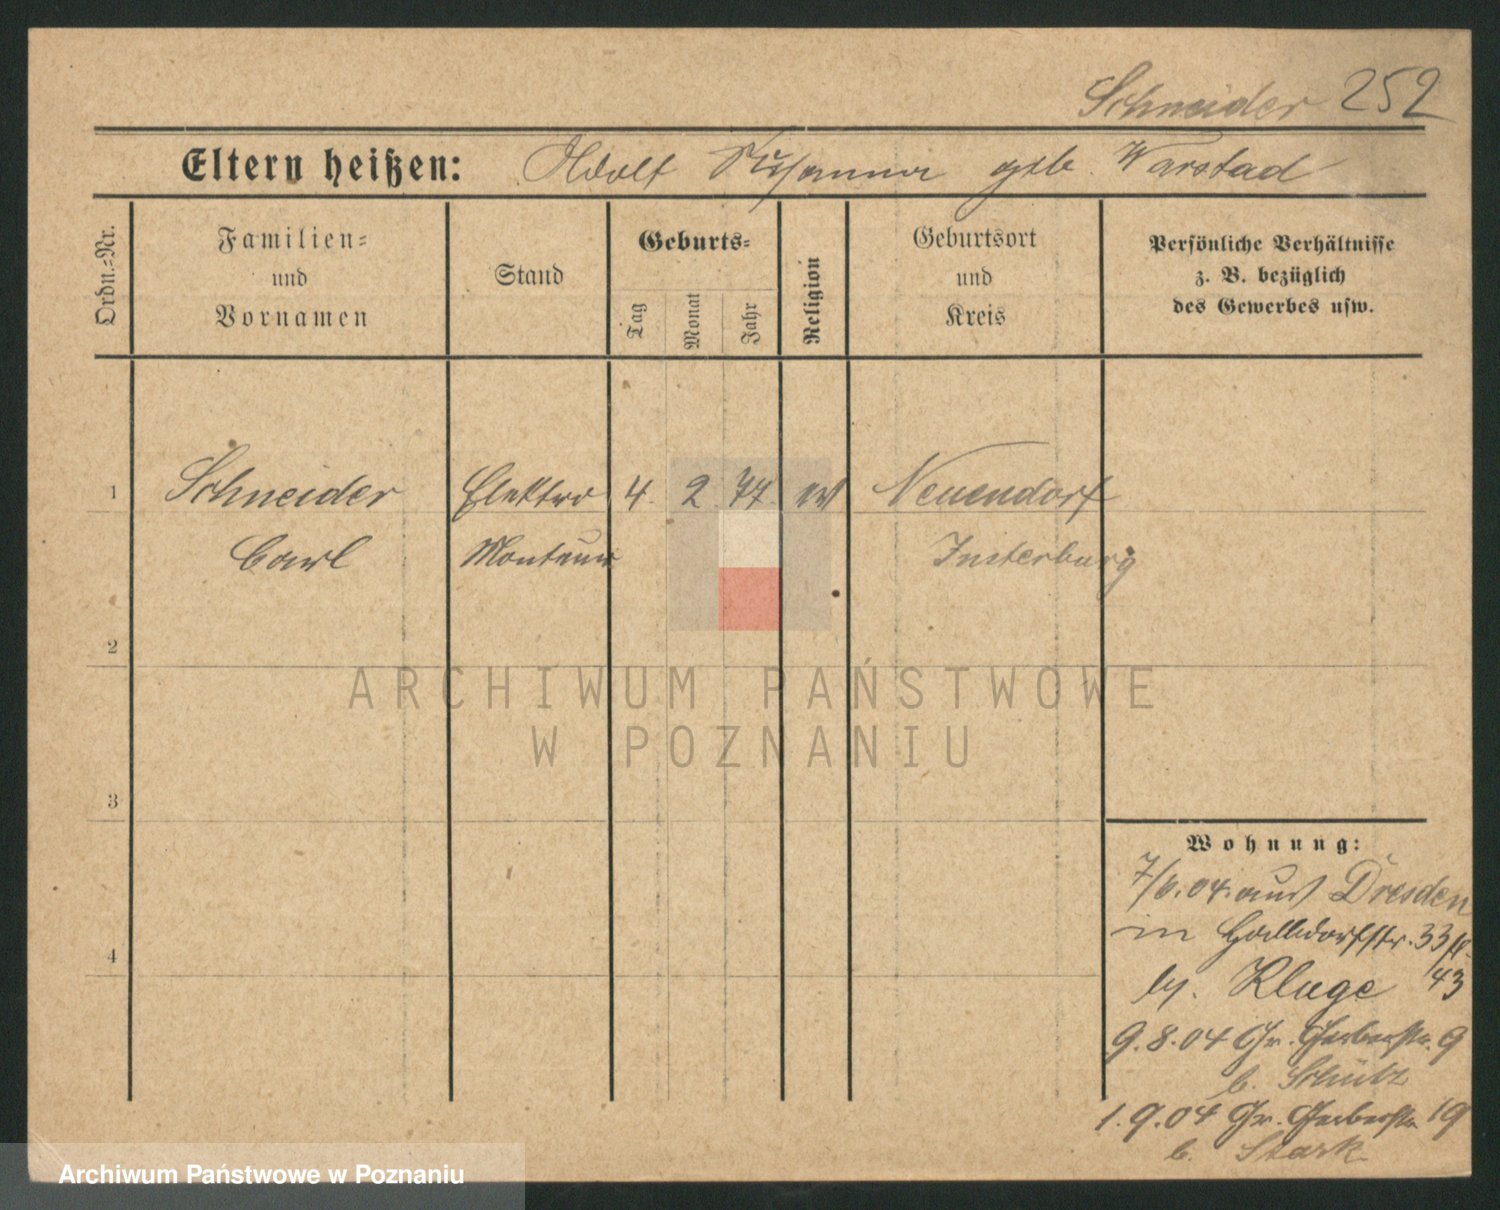 Schneider 252
Eltern heißen: Adolf Susanna geb. Warstad
Ordn.=Nr.
Familien=
und
Vornamen
Stand
Geburts=
Tag
Monat
Jahr
Religion
Geburtsort
und
Kreis
Persönliche Verhältnisse
z. B. bezüglich
des Gewerbes usw.
1 Schneider Elektro 4. 2. 77. ev Neuendorf
Carl Monteur Insterburg
2
3
4
Wohnung:
7/6.04. aus Dresden
in Halldorfstr. 33
43
by. Kluge
9.8.04 Gr. Gerberstr. 9
b. Schütz
1.9.04 Gr. Gerberstr. 19
b. Stark
ARCHIWUM PAŃSTWOWE
W POZNANIU
Archiwum Państwowe w Poznaniu